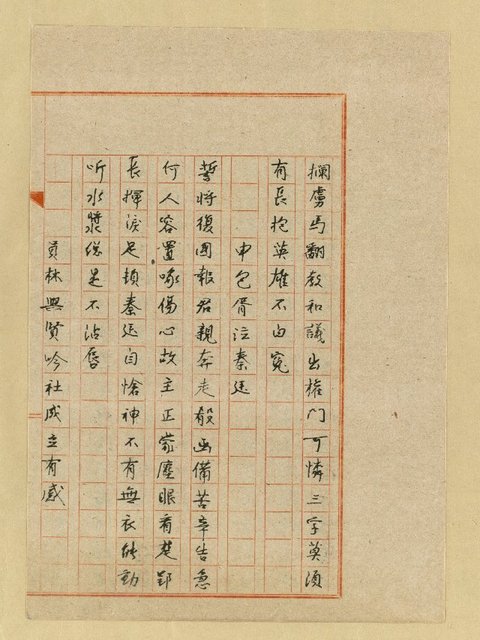 攔虜馬翻教和議出權門可憐三字莫須
有長抱英雄不白冤
申包胥泣秦廷
誓將復國報君親奔走殽函備苦辛告急
何人容置喙傷心故主正蒙塵眼看楚郢
長揮淚足頓秦廷自愴神不有無衣能動
听水漿是不沾唇
員林興賢吟社成立有感